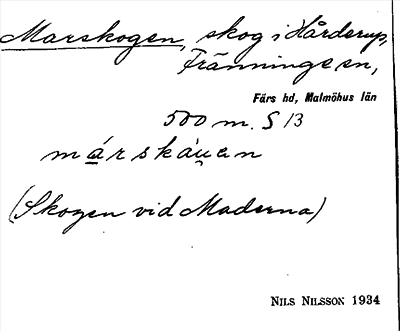 Marskogen, skog i Hårderup,
Fränninge sn,
Färs hd, Malmöhus län
500 m. S 13
márskáu̯en
(Skogen vid Maderna)
NILS NILSSON 1934